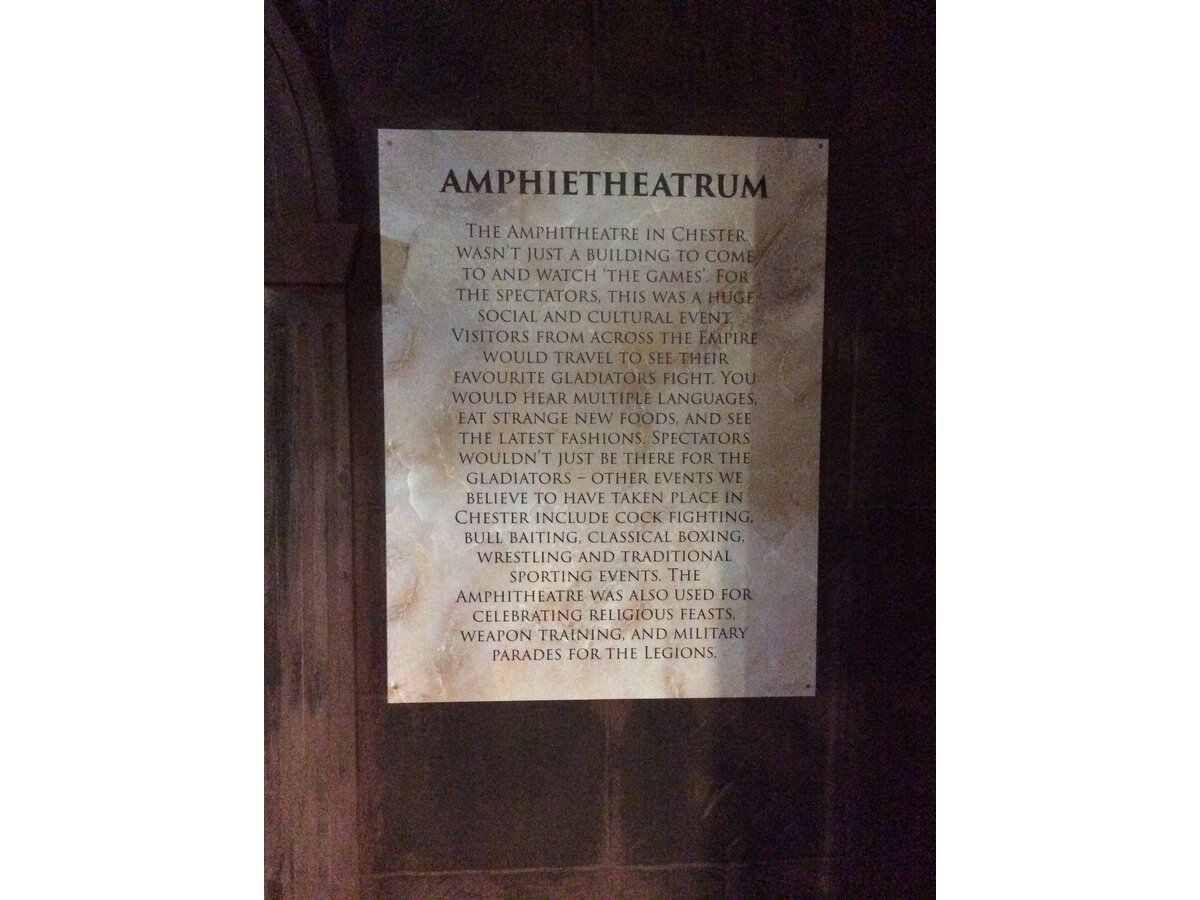 AMPHIETHEATRUM
THE AMPHITHEATRE IN CHESTER
WASN'T JUST A BUILDING TO COME
TO AND WATCH 'THE GAMES'. FOR
THE SPECTATORS, THIS WAS A HUGE
SOCIAL AND CULTURAL EVENT.
VISITORS FROM ACROSS THE EMPIRE
WOULD TRAVEL TO SEE THEIR
FAVOURITE GLADIATORS FIGHT. YOU
WOULD HEAR MULTIPLE LANGUAGES,
EAT STRANGE NEW FOODS, AND SEE
THE LATEST FASHIONS. SPECTATORS
WOULDN'T JUST BE THERE FOR THE
GLADIATORS – OTHER EVENTS WE
BELIEVE TO HAVE TAKEN PLACE IN
CHESTER INCLUDE COCK FIGHTING,
BULL BAITING, CLASSICAL BOXING,
WRESTLING AND TRADITIONAL
SPORTING EVENTS. THE
AMPHITHEATRE WAS ALSO USED FOR
CELEBRATING RELIGIOUS FEASTS,
WEAPON TRAINING, AND MILITARY
PARADES FOR THE LEGIONS.